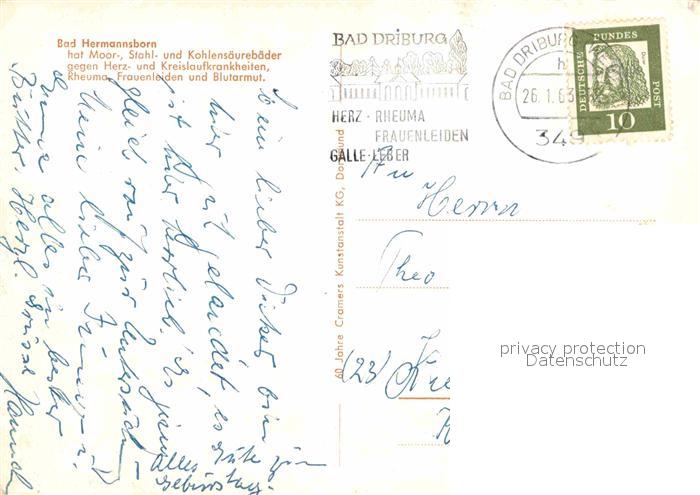 Bad Hermannsborn
hat Moor-, Stahl- und Kohlensäurebäder
gegen Herz- und Kreislaufkrankheiten,
Rheuma, Frauenleiden und Blutarmut.
BAD DRIBURG
HERZ · RHEUMA
FRAUENLEIDEN
GALLE · LEBER
BAD DRIBURG
h
26.1.63
349
DEUTSCHE BUNDES POST
10
60 Jahre Cramers Kunstanstalt KG, Dortmund
An
Herrn
Theo
(23)
privacy protection
Datenschutz
lieber bin
hier gut gelandet, es
ist hier herrlich. Es ging
gleich rauf zur
Mein lieber
alles in bester
Herzl. Grüsse
alles Gute zum
Geburtstag.